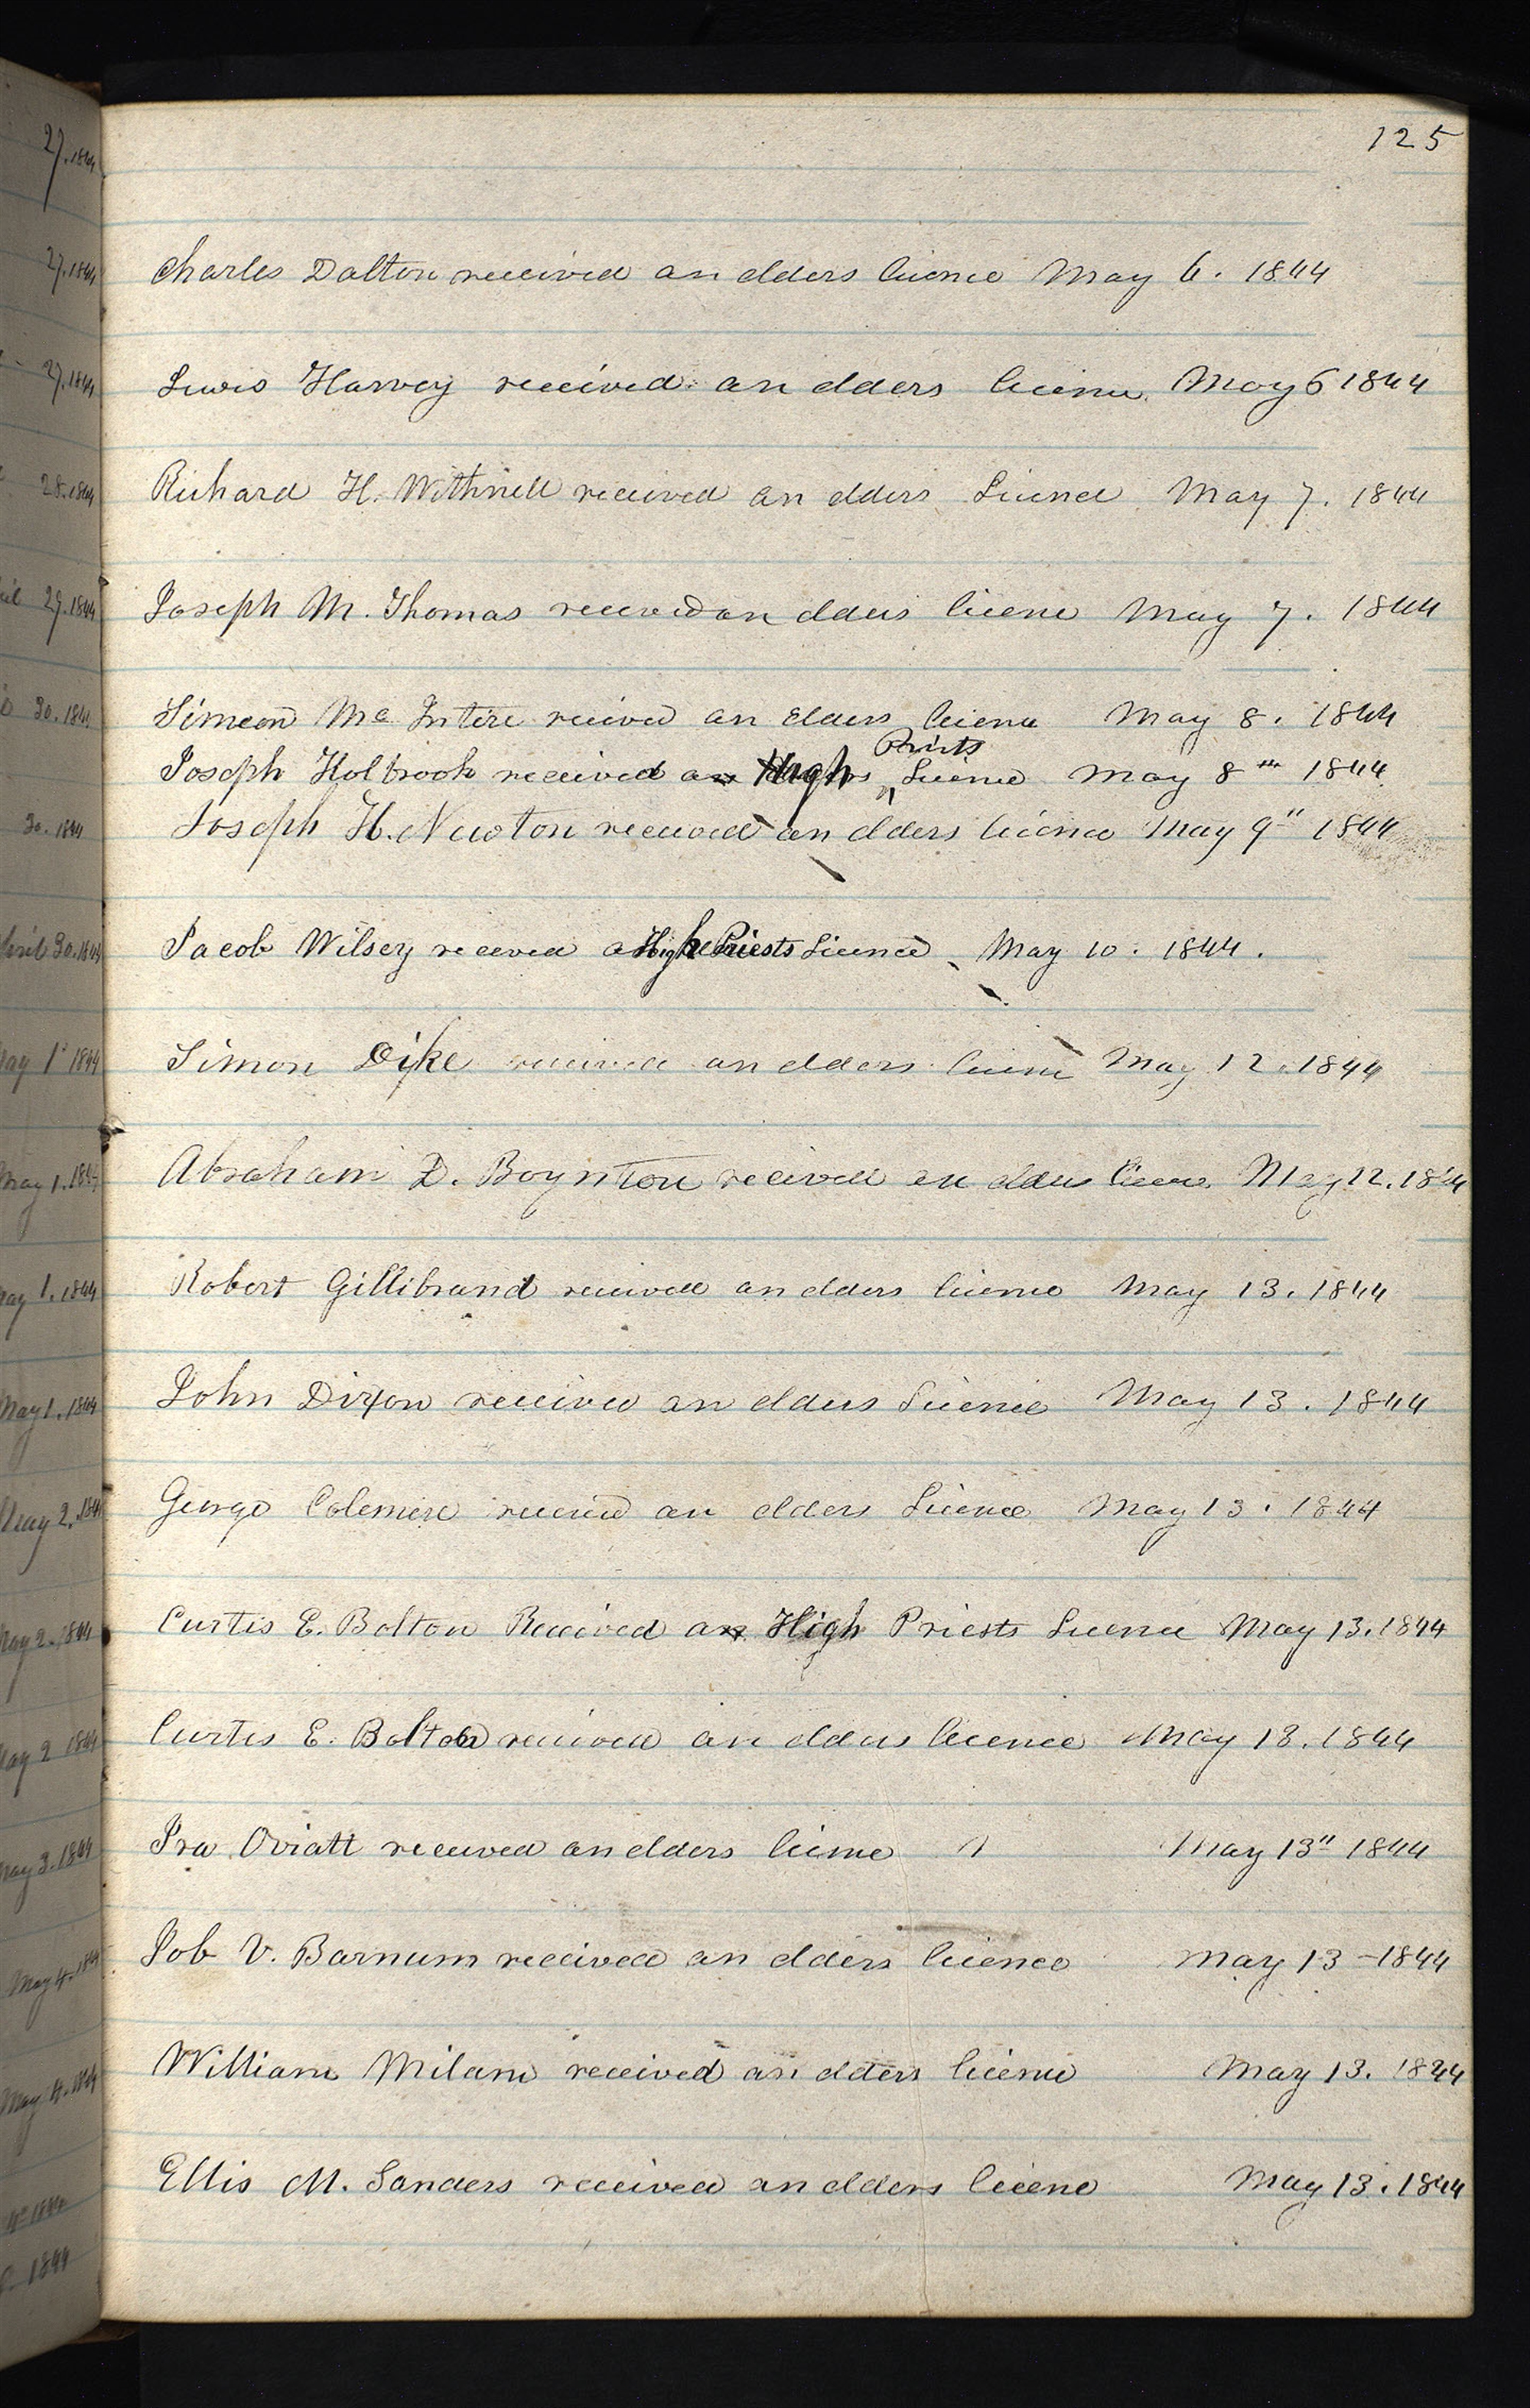 125
Charles Dalton received an elders licence May 6. 1844
Lewis Harvey received an elders licence May 6 1844
Richard H. Withnell received an elders Licence May 7. 1844
Joseph M. Thomas received an elders licence May 7. 1844
Simeon Mc Intire recived an elders licence May 8. 1844
Priests
Joseph Holbrook received a High Licence May 8th 1844
Joseph H. Newton received an elders licence May 9" 1844
Jacob Wilsey receved a High Priests Licence May 10. 1844.
Simon Dike received an elders licence May 12. 1844
Abraham D. Boynton received an elders licence May 12. 1844
Robert Gillibrand received an elders licence May 13. 1844
John Dixon received an elders Licence May 13. 1844
George Colemere received an elders Licence May 13. 1844
Curtis E. Bolton Received a High Priests Licence May 13. 1844
Curtis E. Bolton received an elders licence May 13. 1844
Ira Oviatt received an elders licence May 13" 1844
Job V. Barnum received an elders licence May 13 - 1844
William Milam received an elders licence May 13. 1844
Ellis M. Sanders received an elders licence May 13. 1844
27. 1844
27. 1844
27. 1844
28. 1844
29. 1844
30. 1844
30. 1844
30. 1844
May 1st 1844
May 1. 1844
May 1. 1844
May 1. 1844
May 2. 1844
May 2. 1844
May 2 1844
May 3. 1844
May 4. 1844
May 4. 1844
1844
1844